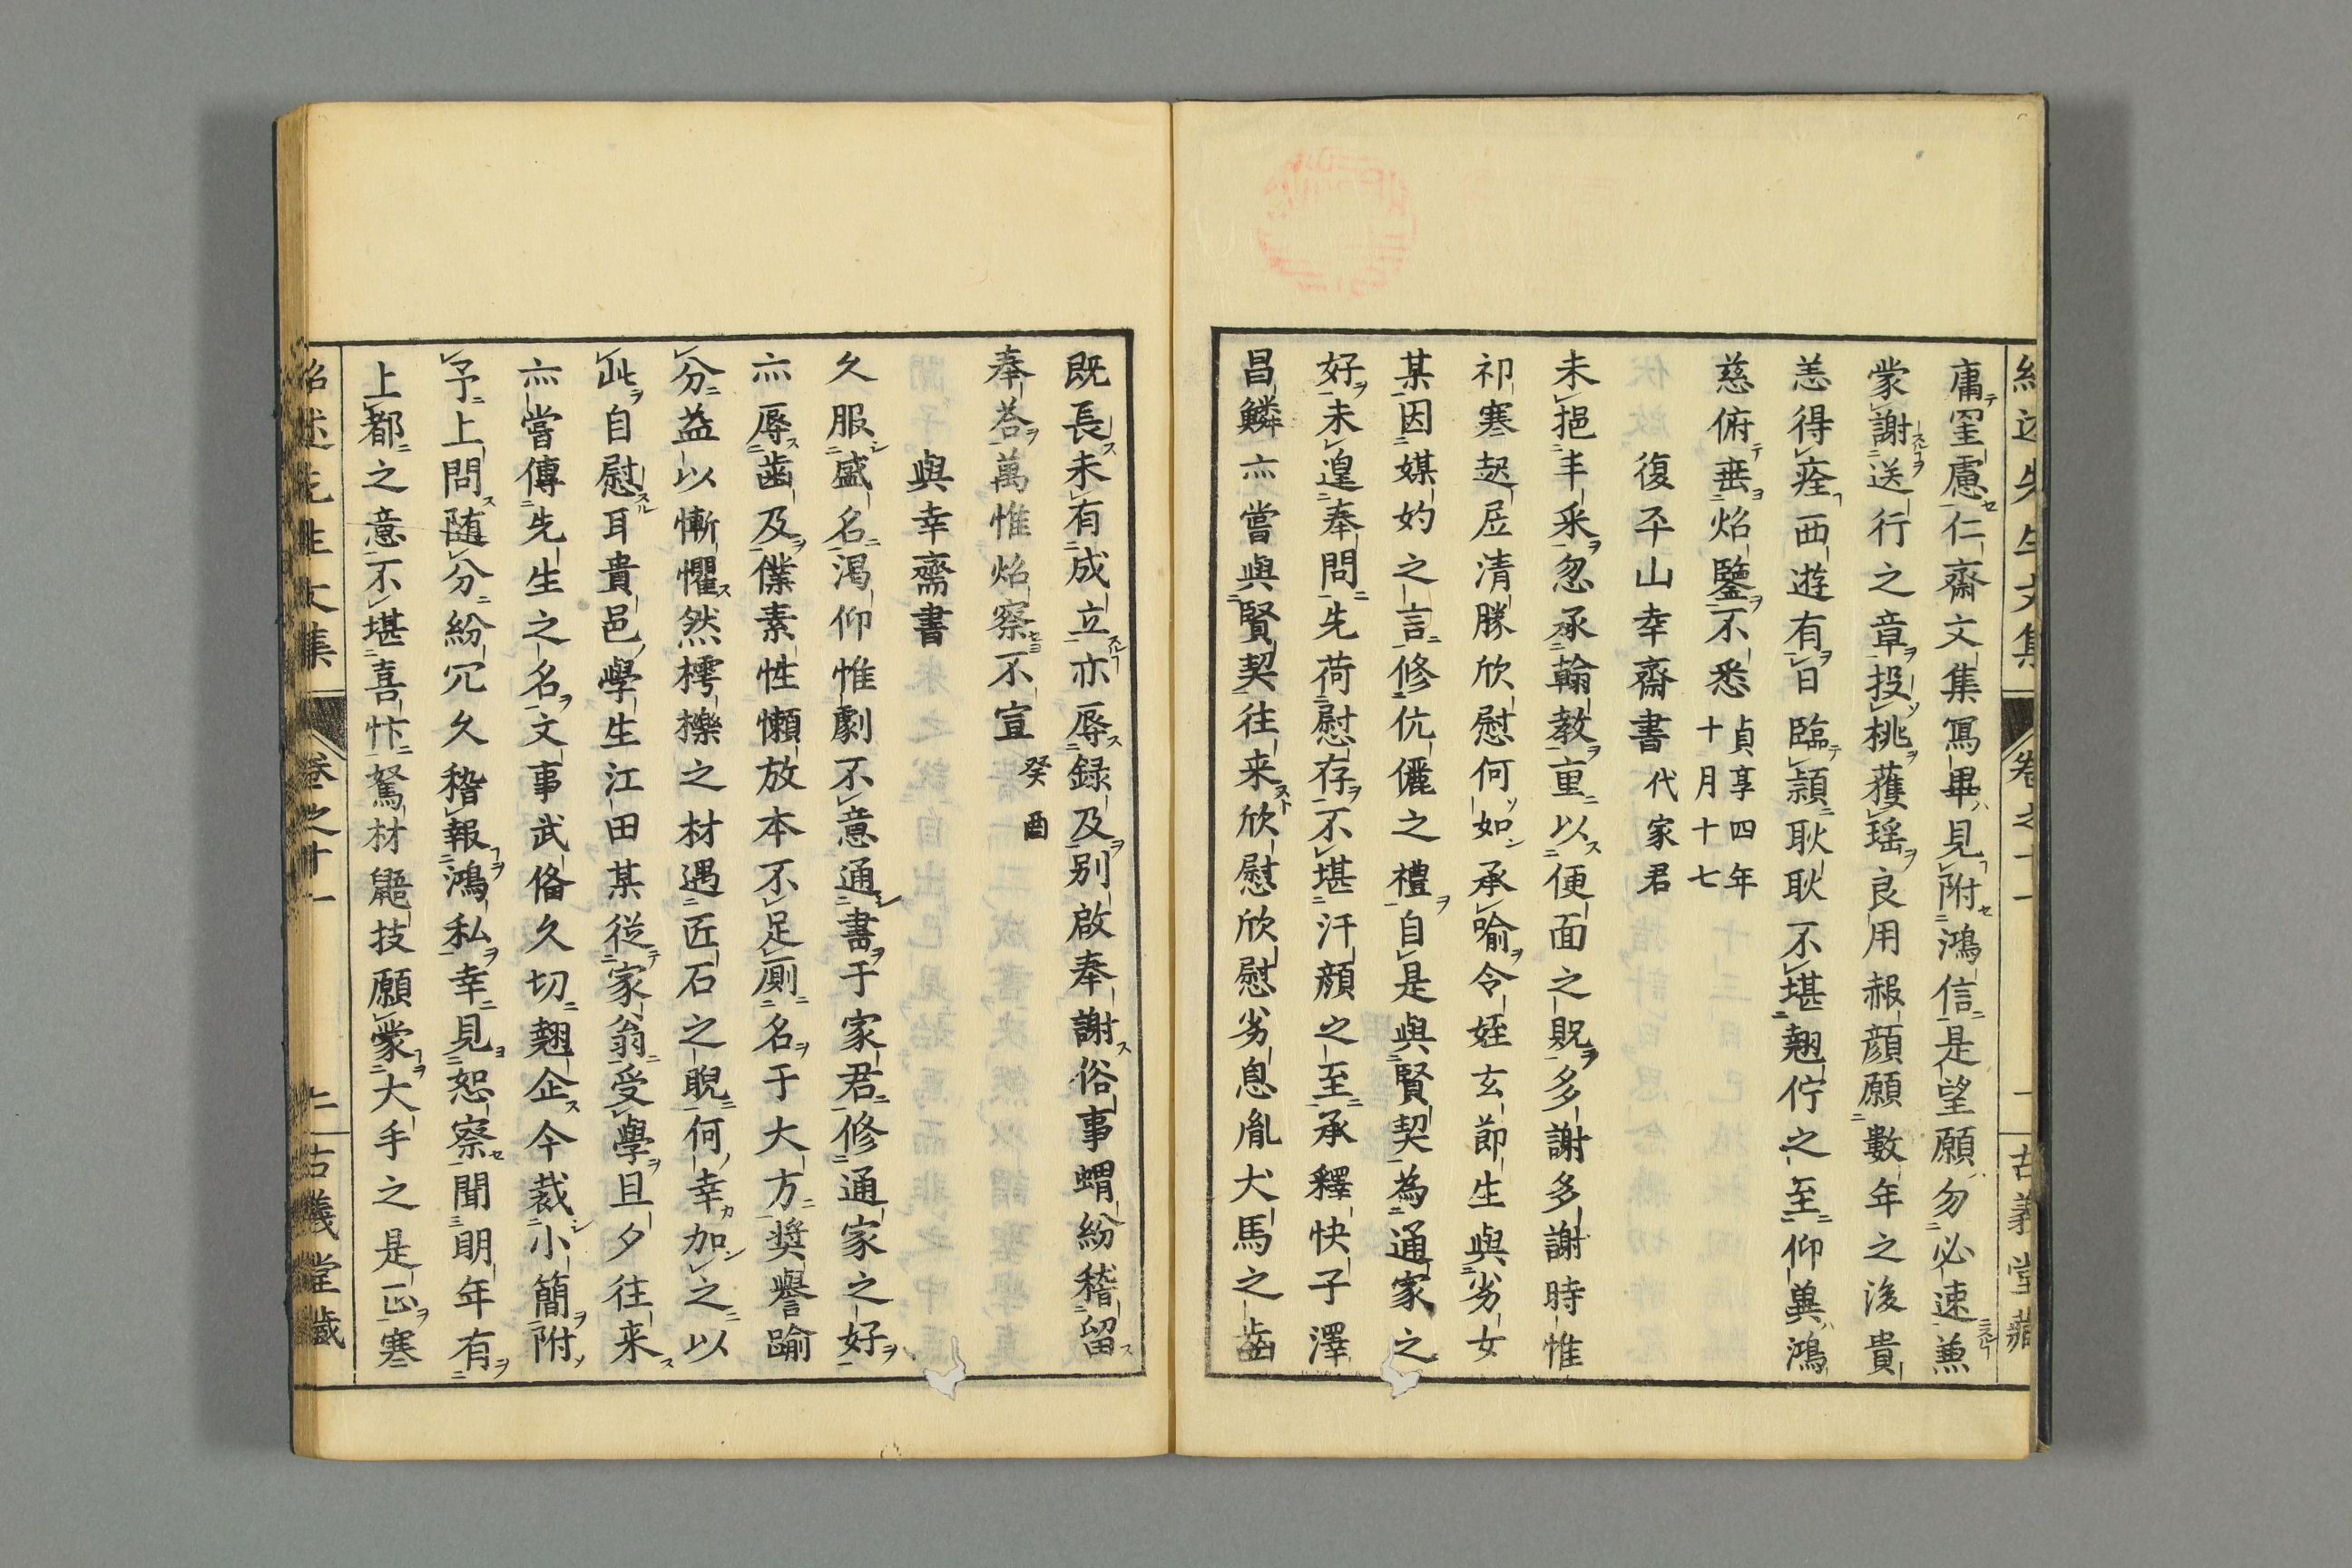 紹述先生文集 卷之十一 一 古義堂藏
庸罣慮仁齋文集寫畢見附鴻信是望願勿必速兼
蒙謝送行之章投桃獲瑤良用赧顔願數年之後貴
恙得痊西遊有日臨頴耿耿不堪翹佇之至仰兾鴻
慈俯垂炤鑒不悉貞享四年十月十七
復平山幸齋書代家君
未挹丰采忽承翰教重以便面之貺多謝多謝時惟
祁寒起居清勝欣慰何如承喻令姪玄節生與劣女
某因媒妁之言修伉儷之禮自是與賢契為通家之
好未遑奉問先荷慰存不堪汗顔之至承釋快子澤
昌鱗亦嘗與賢契往来欣慰欣慰劣息胤犬馬之齒
既長未有成立亦辱録及别啟奉謝俗事蝟紛稽留
奉荅萬惟炤察不宣癸酉
與幸齋書
久服盛名渴仰惟劇不意通書于家君修通家之好
亦辱齒及僕素性懶放本不足厠名于大方奬譽踰
分益以慚懼然樗櫟之材遇匠石之睨何幸加之以
此自慰耳貴邑學生江田某從家翁受學旦夕往来
亦嘗傳先生之名文事武俻久切翹企今裁小簡附
予上問随分紛冗久稽報鴻私幸見恕察聞明年有
上都之意不堪喜忭駑材鼯技願蒙大手之是正寒
紹述先生文集 卷之十一 二 古義堂藏